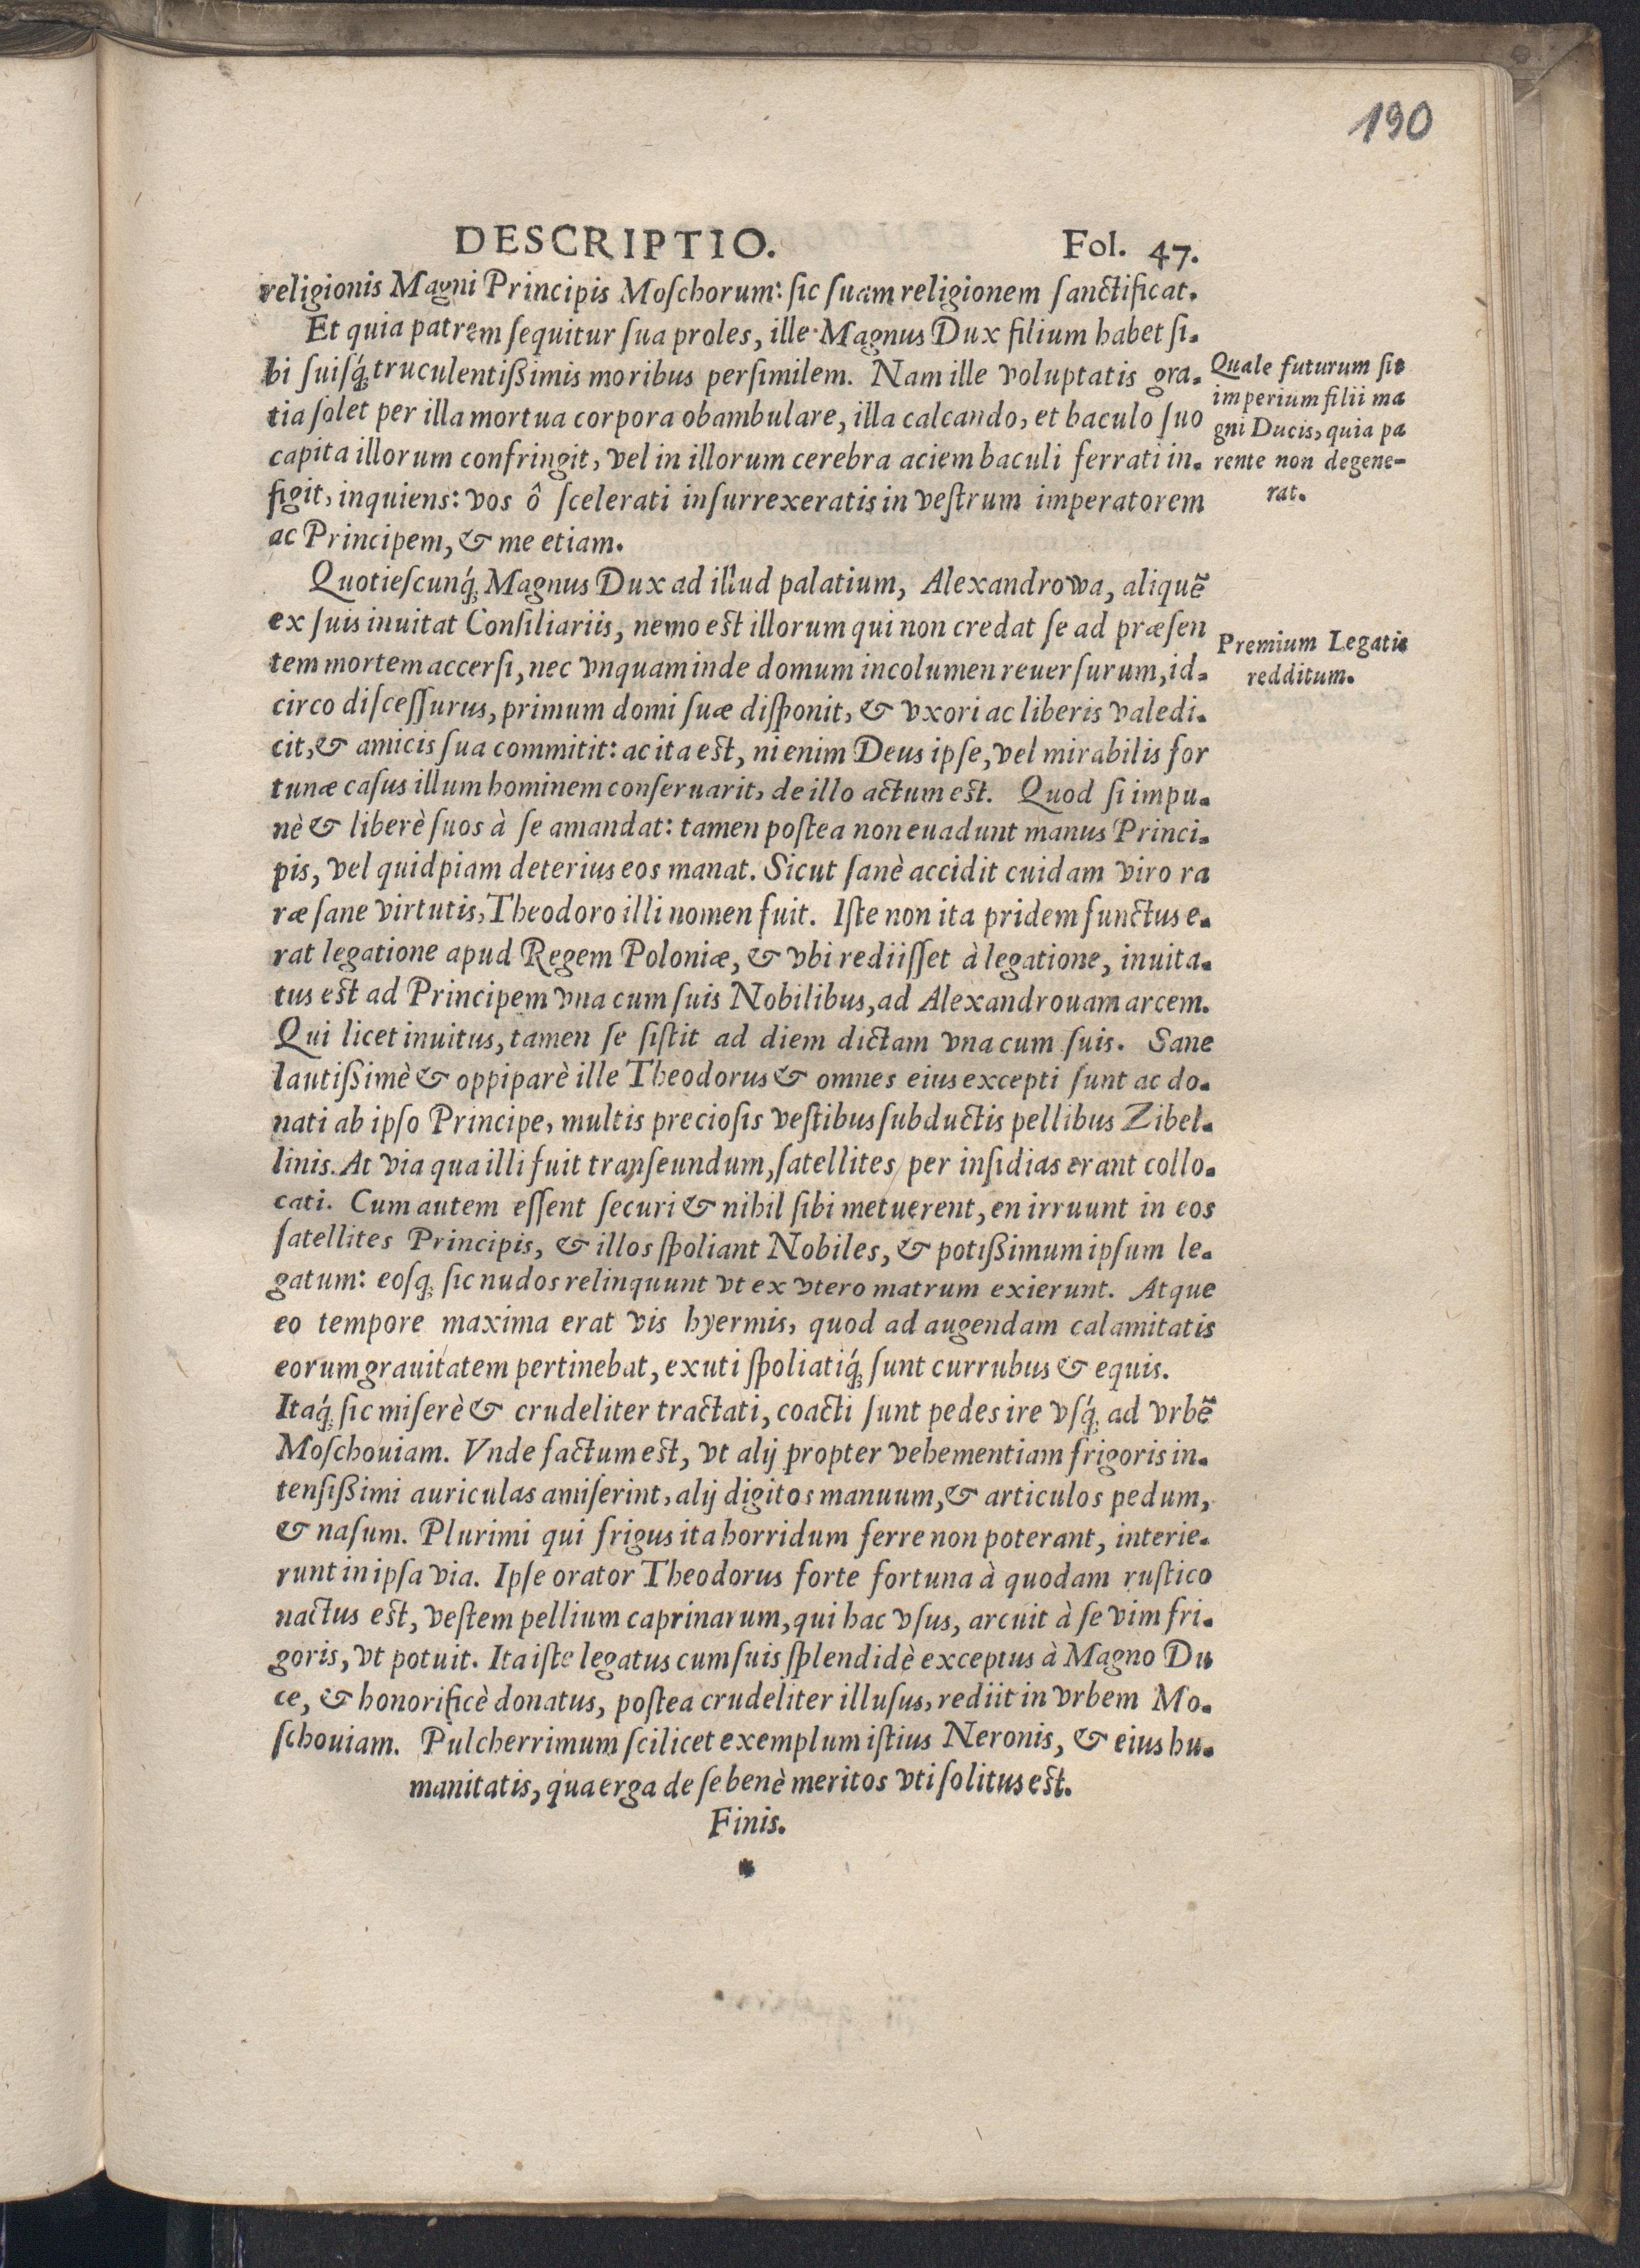 190
DESCRIPTIO. Fol. 47.
religionis Magni Principis Moſchorum: ſic ſuam religionem ſanctificat.
Et quia patrem ſequitur ſua proles, ille Magnus Dux filium habet ſi-
bi ſuiſq́; truculentißimis moribus perſimilem. Nam ille voluptatis gra-
tia ſolet per illa mortua corpora obambulare, illa calcando, et baculo ſuo
capita illorum confringit, vel in illorum cerebra aciem baculi ferrati in-
figit, inquiens: vos ô ſcelerati inſurrexeratis in veſtrum imperatorem
ac Principem, & me etiam.
Quale futurum ſit
imperium filii ma
gni Ducis, quia pa
rente non degene-
rat.
Quotieſcunq́; Magnus Dux ad illud palatium, Alexandrowa, aliquẽ
ex ſuis inuitat Conſiliariis, nemo est illorum qui non credat ſe ad præſen
tem mortem accerſi, nec vnquam inde domum incolumen reuerſurum, id-
circo diſceſſurus, primum domi ſuæ diſponit, & vxori ac liberis valedi-
cit, & amicis ſua commitit: ac ita est, ni enim Deus ipſe, vel mirabilis for
tunæ caſus illum hominem conſeruarit, de illo actum est. Quod ſi impu-
nè & liberè ſuos à ſe amandat: tamen poſtea non euadunt manus Princi-
pis, vel quidpiam deterius eos manat. Sicut ſanè accidit cuidam viro ra
ræ ſane virtutis, Theodoro illi nomen fuit. Iſte non ita pridem functus e-
rat legatione apud Regem Poloniæ, & vbi rediiſſet à legatione, inuita-
tus est ad Principem vna cum ſuis Nobilibus, ad Alexandrouam arcem.
Qui licet inuitus, tamen ſe ſiſtit ad diem dictam vna cum ſuis. Sane
lautißimè & oppiparè ille Theodorus & omnes eius excepti ſunt ac do-
nati ab ipſo Principe, multis precioſis veſtibus ſubductis pellibus Zibel-
linis. At via qua illi fuit tranſeundum, ſatellites per inſidias erant collo-
cati. Cum autem eſſent ſecuri & nihil ſibi metuerent, en irruunt in eos
ſatellites Principis, & illos ſpoliant Nobiles, & potißimum ipſum le-
gatum: eoſq; ſic nudos relinquunt vt ex vtero matrum exierunt. Atque
eo tempore maxima erat vis hyermis, quod ad augendam calamitatis
eorum grauitatem pertinebat, exuti ſpoliatiq́; ſunt currubus & equis.
Itaq́; ſic miſerè & crudeliter tractati, coacti ſunt pedes ire vſq́; ad vrbẽ
Moſchouiam. Vnde factum est, vt alij propter vehementiam frigoris in-
tenſißimi auriculas amiſerint, alij digitos manuum, & articulos pedum,
& naſum. Plurimi qui frigus ita horridum ferre non poterant, interie-
runt in ipſa via. Ipſe orator Theodorus forte fortuna à quodam ruſtico
nactus est, veſtem pellium caprinarum, qui hac vſus, arcuit à ſe vim fri-
goris, vt potuit. Ita iſte legatus cum ſuis ſplendidè exceptus à Magno Du
ce, & honorificè donatus, poſtea crudeliter illuſus, rediit in vrbem Mo-
ſchouiam. Pulcherrimum ſcilicet exemplum iſtius Neronis, & eius hu-
manitatis, qua erga de ſe benè meritos vti ſolitus est.
Finis.
*
Premium Legatis
redditum.